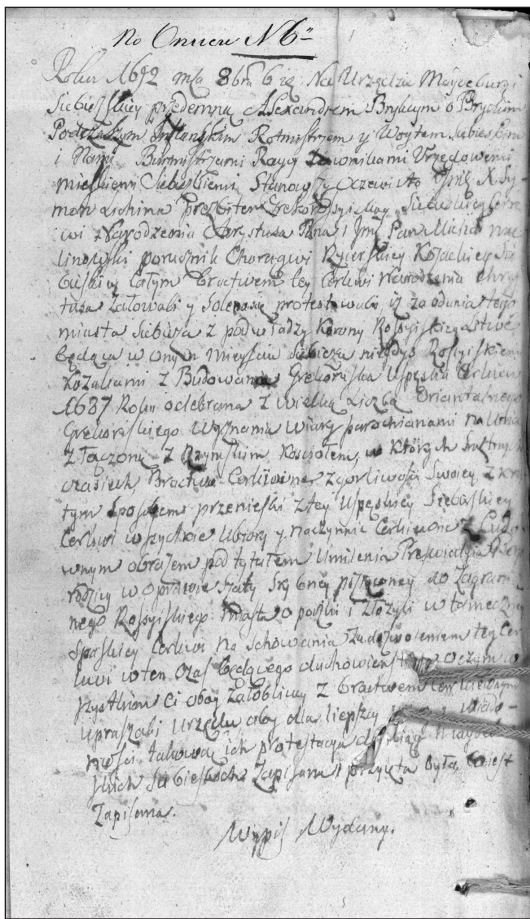 По Описи № 6й
Roku 1692 mca 8bra 6 dg. Na Urzędzie Maydeburgi
Siebieskiey przedemną Alexandrem Brykcym
Podczaszym Inflanskim Rotmistrzem y Woytem Siebieskim
i Nami Burmistrzami Raycy Ławnikami Urzędownie
mieskiemi Siebieskiemi Stanowszy Oczewisto Jmć X. Szy-
mon Prezbiter Siebieskiey Cer-
kwi z Narodzenia Chrystusa Pana i Jmć Pan Michał
linowski porucznik Chorągwi Rycerskiey Kozackiey Sie-
bieskiey całym Bractwem tey Cerkwi Narodzenia Chry-
stusa żałowali y Solennie protestowali iż za oddania tego
miasta Siebieża z pod władzy Korony Rossyiskiey Litwie
będąca w onym mieyscu Siebieżu niegdyś Rossyiskiemi
Kozakami Zbudowana Grekoruska Uspeńska Cerkiew
1687 Roku odebrana z wielką liczbą Orientalnego
Grekoruskiego Wyznania Wiary parochianami na Unią
Złączoną z Rzymskim Kościołem, w których smutnych
czasiech Bractwo Cerkiewne z gorliwości Swoiey z
tym Sposobem przenieśli z tey Uspeńskiey Siebieskiey
Cerkwi wszystkie Ubiory y naczynnia Cerkiewne z Cudo-
wnym obrazem pod tytułem Umilenia Preswiatyia Boho-
rodzicy w oprawie Szaty Srebney pozłacaney do Zagrani-
cznego Rossyiskiego Miasta Opoczki i złożyli w tameczney
Spaskiey Cerkwi na schowania za dozwoleniem tey Cer-
kwi w ten czas będącego duchowienstwa, o czym
wszystkim Ci oboy żałobliwcy z bractwem cerkiewnym
upraszali Urzędu aby dla liepszey wiado-
mości takowa ich protestacya do xiąg Maydebur-
skich Siebieskich Zapisana i przyięta była, iest
Zapisana.
Wypis Wydany.